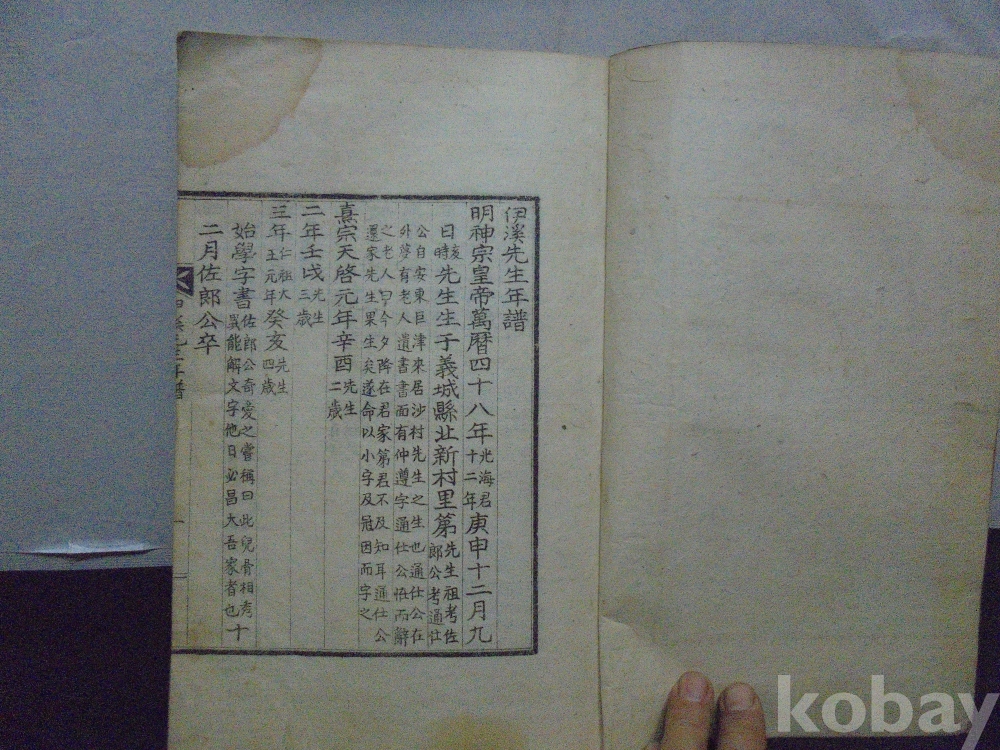 伊溪先生年譜
明神宗皇帝萬曆四十八年光海君十二年庚申十二月九
日亥時先生生于義城縣北新村里第先生祖考佐郎公考通仕
公自安東巨津來居沙村先生之生也通仕公在
外夢有老人遺書書面有仲遵字通仕公怪而辭
之老人曰今夕降在君家第君不及知耳通仕公
還家先生果生矣遂命以小字及冠因而字之
熹宗天啓元年辛酉先生二歲
二年壬戌先生三歲
三年仁祖大王元年癸亥先生四歲
始學字書佐郎公奇愛之嘗稱曰此兒骨相秀異能解文字他日必昌大吾家者也十
二月佐郎公卒
溪先生年譜
一
kobay